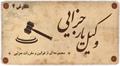 وکیل یار جزایی
مجموعه‌ای از قوانین و مقررات جزایی